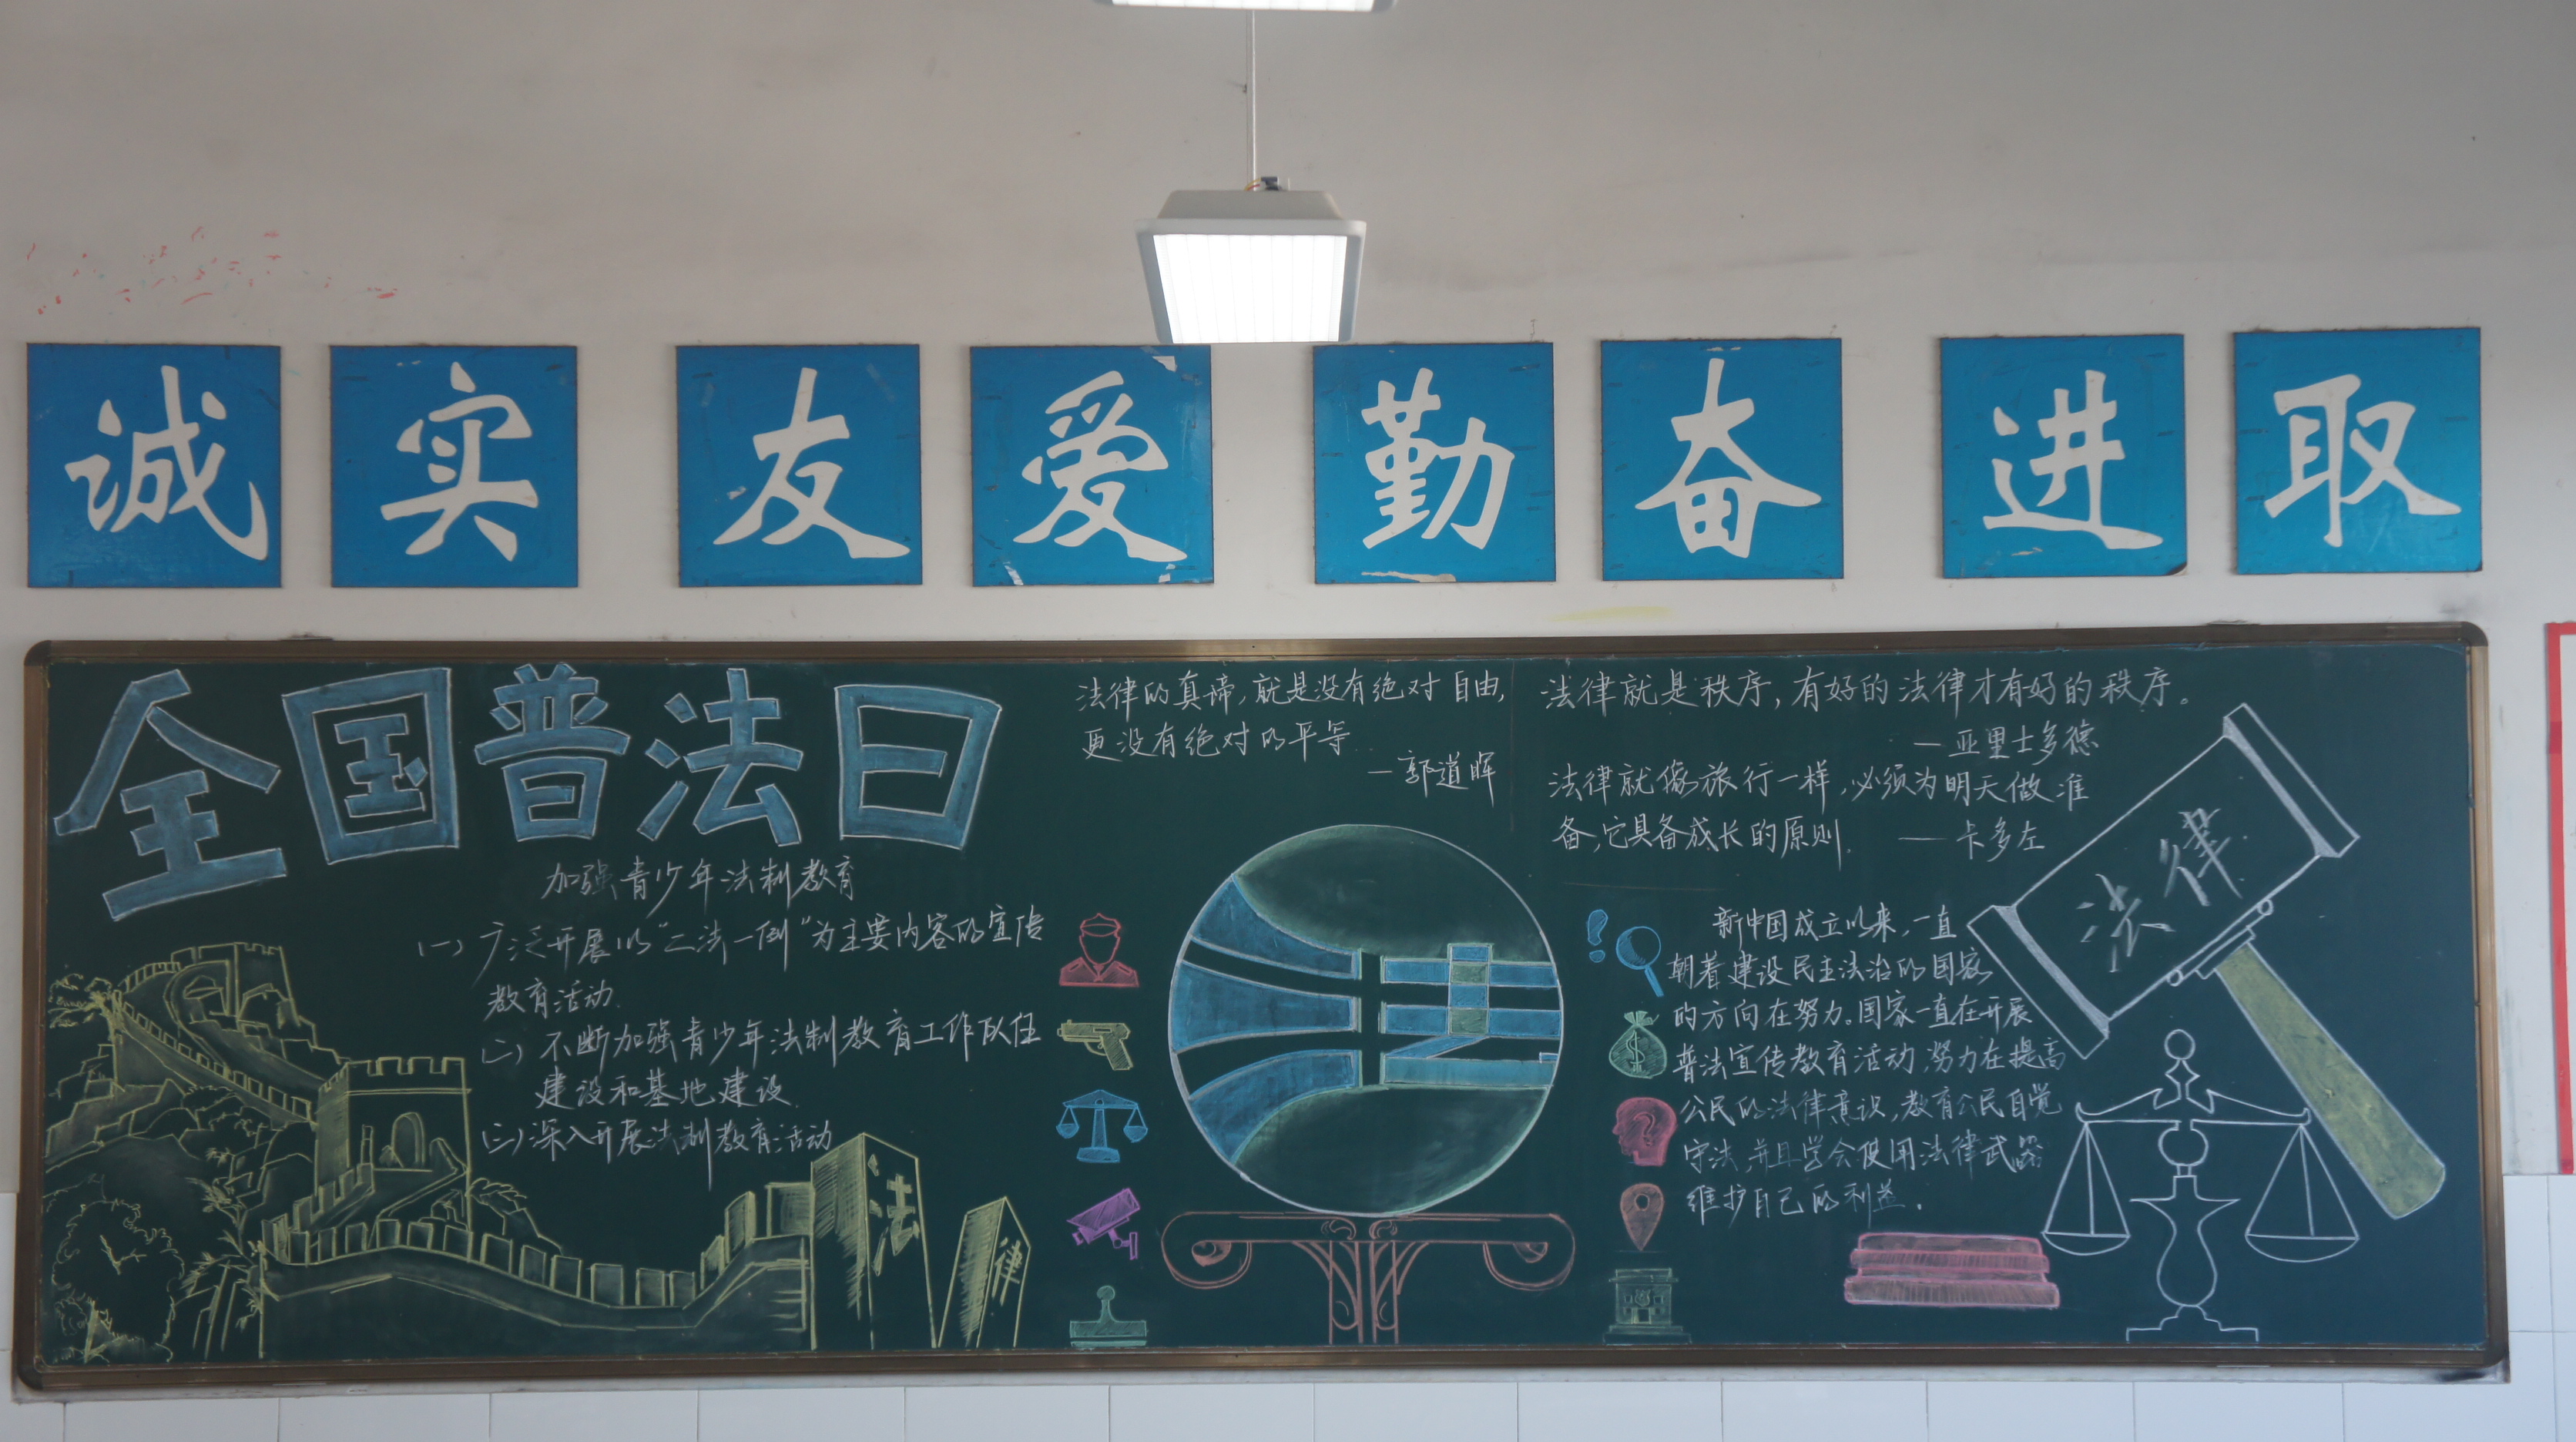 诚实 友爱 勤奋 进取
全国普法日
加强青少年法制教育
(一) 广泛开展以“二法一例”为主要内容的宣传
教育活动.
(二) 不断加强青少年法制教育工作队伍
建设和基地建设.
(三) 深入开展法制教育活动
法
律
法律的真谛,就是没有绝对自由,
更没有绝对的平等
—郭道晖
法律就是秩序,有好的法律才有好的秩序。
—亚里士多德
法律就像旅行一样,必须为明天做准
备,它具备成长的原则. ——卡多左
新中国成立以来,一直
朝着建设民主法治的国家
的方向在努力。国家一直在开展
普法宣传教育活动,努力在提高
公民的法律意识,教育公民自觉
守法,并且学会使用法律武器
维护自己的利益.
法律